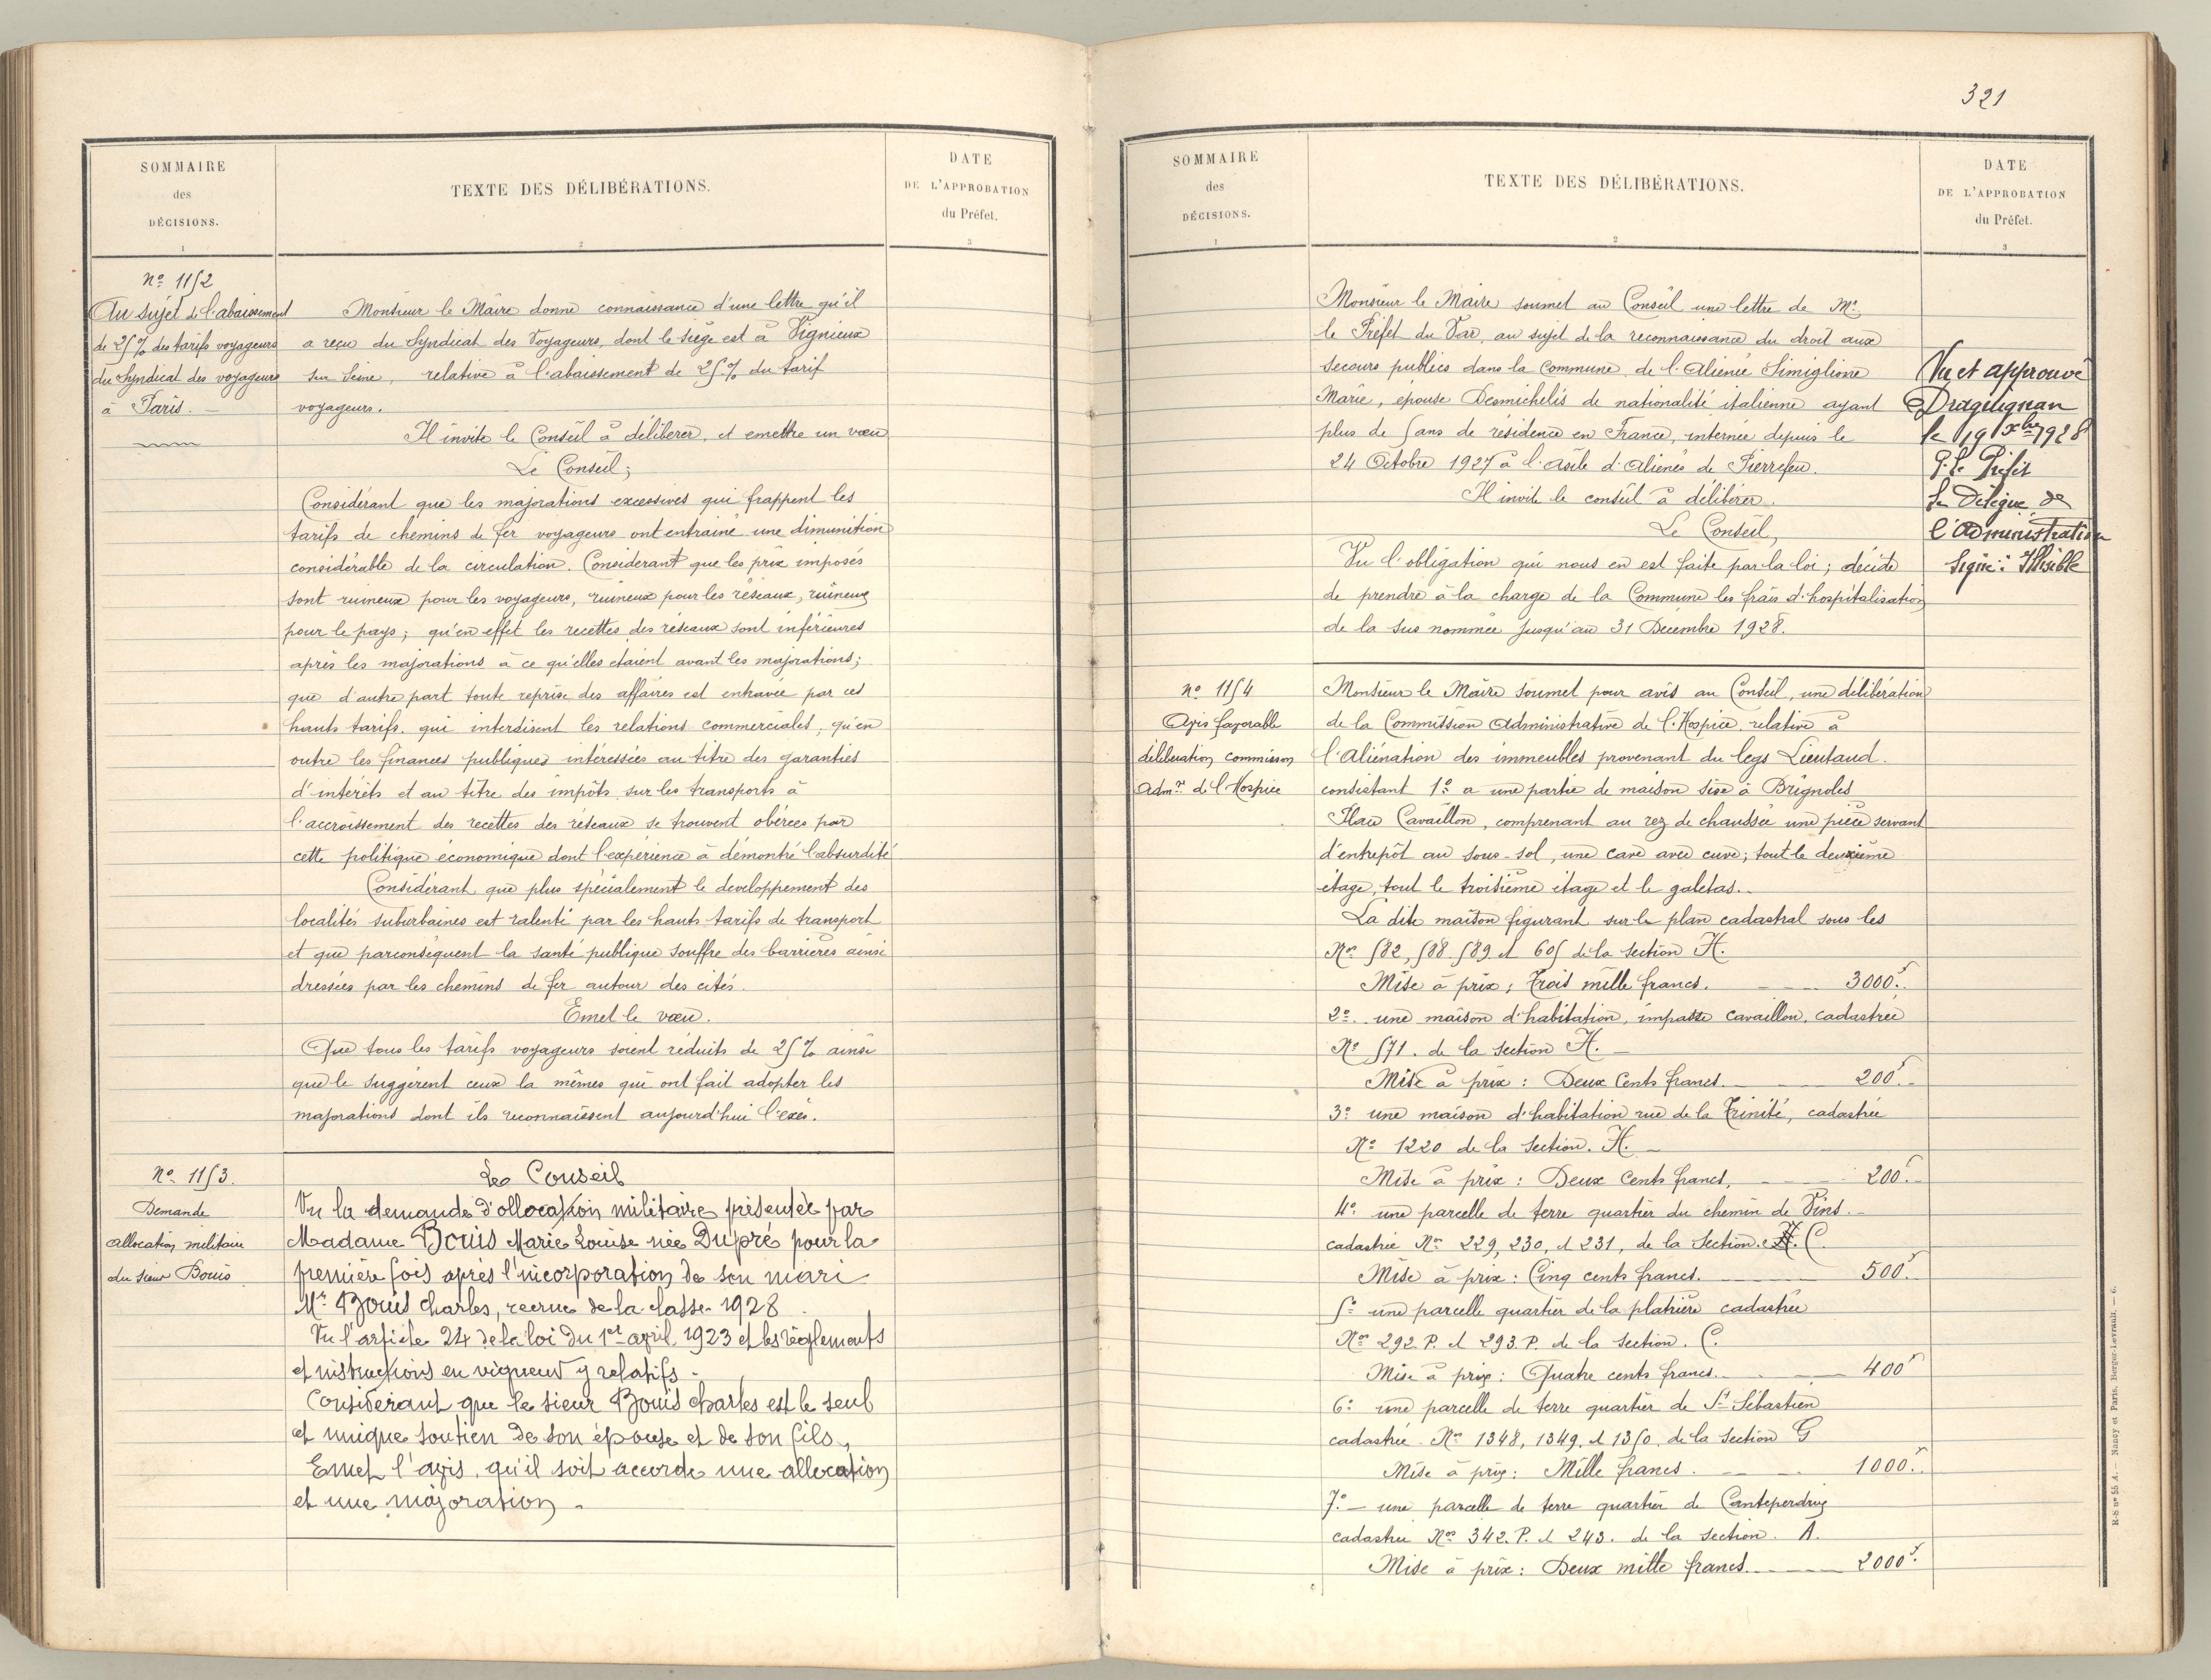 SOMMAIRE
des
DÉCISIONS.
1
TEXTE DES DÉLIBÉRATIONS.
2
DATE
DE L'APPROBATION
du Préfet.
3
Nº 1152
Au sujet de l'abaissement
de 25% des tarifs voyageurs
du Syndicat des voyageurs
à Paris. —
Monsieur le Maire donne connaissance d'une lettre qu'il
a reçu du Syndicat des Voyageurs, dont le siège est à Vignieux
sur Seine, relative à l'abaissement de 25% du tarif
voyageurs.
Il invite le Conseil à délibérer, et emettre un vœu
Le Conseil;
Considérant que les majorations excessives qui frappent les
tarifs de chemins de fer voyageurs ont entrainé une dimunition
considérable de la circulation. Considerant que les prix imposés
sont ruineux pour les voyageurs, ruineux pour les réseaux, ruineux
pour le pays; qu'en effet les recettes des réseaux sont inférieures
après les majorations à ce qu'elles etaient avant les majorations;
que d'autre part toute reprise des affaires est entravée par ces
hauts tarifs. qui interdisent les relations commerciales; qu'en
outre les finances publiques intéressées au titre des garanties
d'intérêts et au titre des impôts sur les transports à
l'accroissement des recettes des réseaux se trouvent obérées par
cette politique économique dont l'expérience à démontré l'absurdité
Considérant que plus spécialement le developpement des
localités suburbaines est ralenti par les hauts tarifs de transport
et que parconséquent la santé publique souffre des barrières ainsi
dressées par les chemins de fer autour des cités.
Emet le vœu.
Que tous les tarifs voyageurs soient réduits de 25% ainsi
que le suggèrent ceux la mêmes qui ont fait adopter les
majorations dont ils reconnaissent aujourd'hui l'exès.
Nº 1153.
Demande
allocation militaire
du sieur Bouis
Le Conseil
Vu la demande d'ollocation militaire présentée par
Madame Bouis Marie Louise née Dupré pour la
première fois après l'incorporation de son mari
Mr Bouis Charles, recrue de la classe 1928
Vu l'article 24 de la loi du 1er avril 1923 et les règlements
et instructions en vigueur y relatifs -
Considérant que le sieur Bouis Charles est le seul
et unique soutien de son épouse et de son fils,
Emet l'avis, qu'il soit accorde une allocation
et une majoration -
321
SOMMAIRE
des
DÉCISIONS.
1
TEXTE DES DÉLIBÉRATIONS.
2
DATE
DE L'APPROBATION
du Préfet.
3
Monsieur le Maire soumet au Conseil une lettre de Mr.
le Préfet du Var, au sujet de la reconnaissance du droit aux
secours publics dans la Commune de l'aliénée Simiglione
Marie, épouse Desmichelis de nationalité italienne ayant
plus de 5 ans de résidence en France, internée depuis le
24 Octobre 1927 à l'asile d'alienés de Pierrefeu.
Il invite le conseil à délibérer.
Le Conseil,
Vu l'obligation qui nous en est faite par la loi; décide
de prendre à la charge de la Commune les frais d'hospitalisation
de la sus nommée jusqu'au 31 Decembre 1928.
Vu et approuvé
Draguignan
le 19 Xbre 1928
P. le Préfet
Le Délégué de
l'Administration
Signé: Illisible
Nº 1154
Avis favorable
déliberation commission
Adm.ve de l'Hospice
Monsieur le Maire soumet pour avis au Conseil, une délibération
de la Commission Administrative de l'Hospice relative à
l'Aliénation des immeubles provenant du legs Lieutaud.
consistant 1º a une partie de maison sise à Brignoles
Place Cavaillon, comprenant au rez de chaussée une pièce servant
d'entrepôt au sous-sol, une cave avec cuve; tout le deuxième
étage, tout le troisième étage et le galetas.-
La dite maison figurant sur le plan cadastral sous les
Nos 582, 588. 589 et 605 de la section H.
Mise à prix; Trois mille francs. 3000f.
2º. une maison d'habitation, impasse Cavaillon, cadastrée
Nº 571. de la section H. —
Mise à prix : Deux Cents francs. 200f.
3º une maison d'habitation rue de la Trinité, cadastrée
Nº 1220 de la section. H. —
Mise à prix : Deux Cents francs. 200f.
4º une parcelle de terre quartier du chemin de Vins. -
cadastrée Nos 229, 230, et 231, de la section. C.
Mise à prix : Cinq cents francs. 500f.
5º une parcelle quartier de la platrière cadastrée
Nos 292. P. et 293. P. de la section. C.
Mise à prix : Quatre cents francs. 400f
6º une parcelle de terre quartier de St Sébastien
cadastrée Nos 1348, 1349. et 1350. de la section G
Mise à prix : Mille francs. 1000f.
7º. — une parcelle de terre quartier de Canteperdrix
cadastrée Nos 342. P. et 243. de la section. A.
Mise à prix : Deux mille francs. 2000f.
R-S nº 55 A. — Nancy et Paris, Berger-Levrault. — 6.